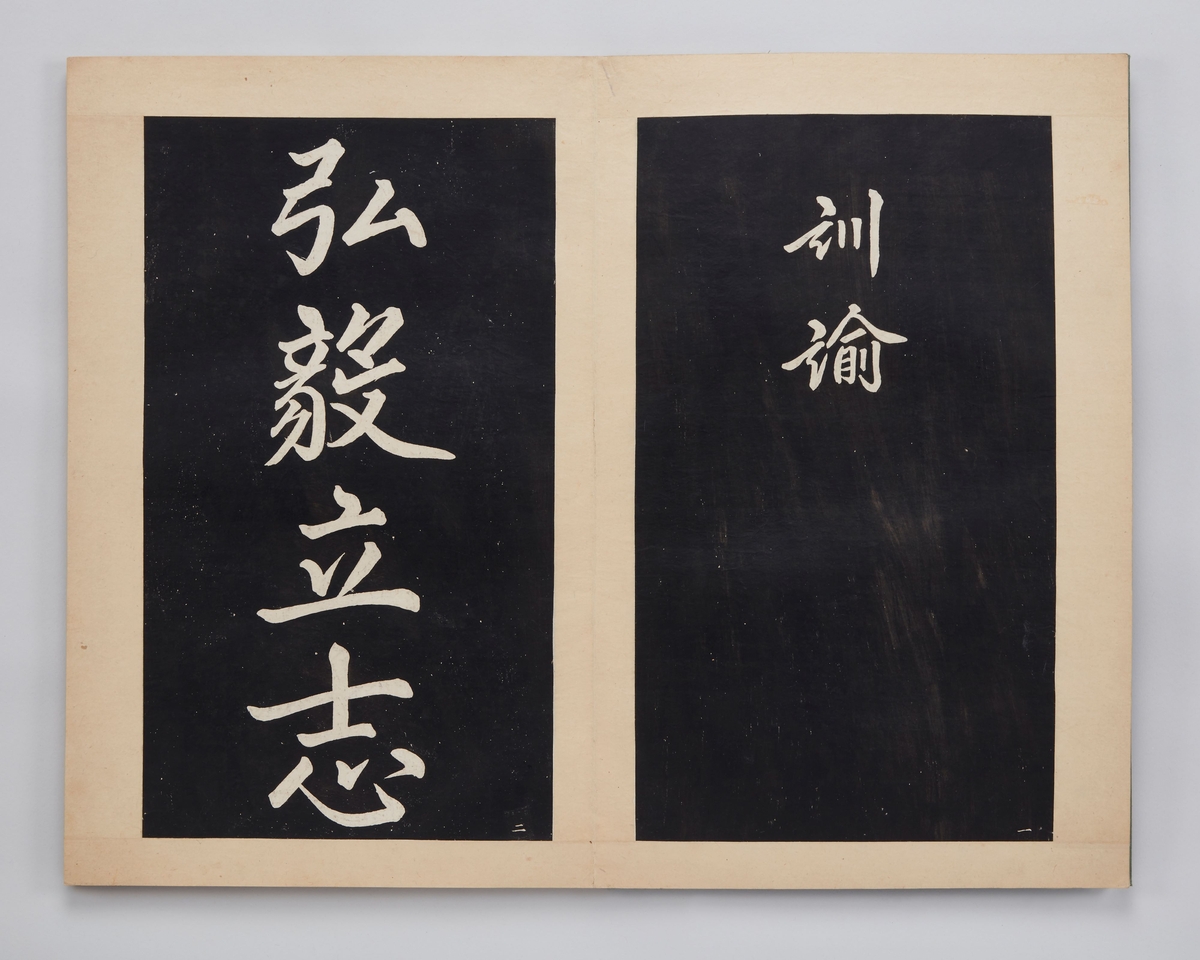 訓諭
一
弘毅立志
二